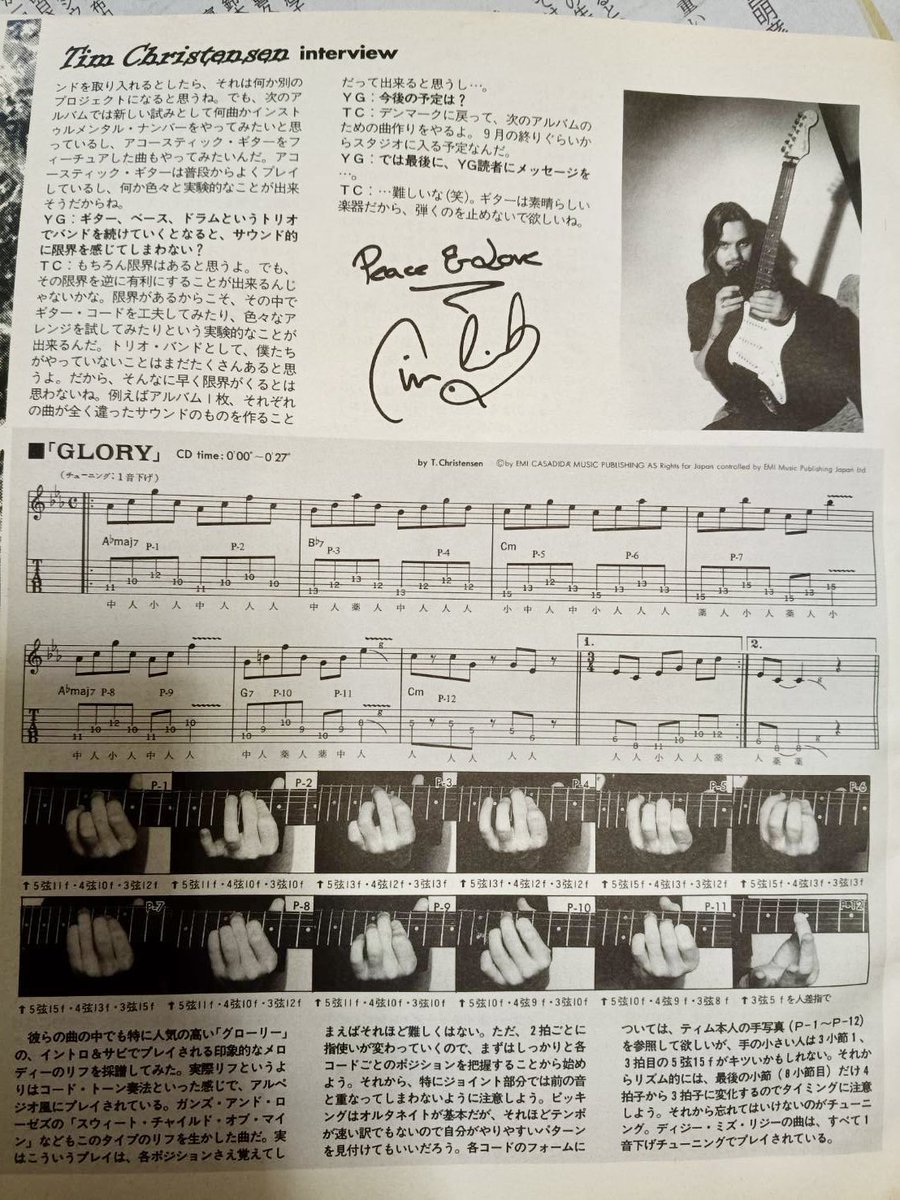 Tim Christensen interview
ンドを取り入れるとしたら、それは何か別の
プロジェクトになると思うね。でも、次のア
ルバムでは新しい試みとして何曲かインスト
ゥルメンタル・ナンバーをやってみたいと思
っているし、アコースティック・ギターをフ
ィーチュアした曲もやってみたいんだ。アコ
ースティック・ギターは普段からよくプレイ
しているし、何か色々と実験的なことが出来
そうだからね。
YG：ギター、ベース、ドラムというトリオ
でバンドを続けていくとなると、サウンド的
に限界を感じてしまわない？
TC：もちろん限界はあると思うよ。でも、
その限界を逆に有利にすることが出来るんじ
ゃないかな。限界があるからこそ、その中で
ギター・コードを工夫してみたり、色々なア
レンジを試してみたりという実験的なことが
出来るんだ。トリオ・バンドとして、僕たち
がやっていないことはまだたくさんあると思
うよ。だから、そんなに早く限界がくるとは
思わないね。例えばアルバム1枚、それぞれ
の曲が全く違ったサウンドのものを作ること
だって出来ると思うし…。
YG：今後の予定は？
TC：デンマークに戻って、次のアルバムの
ための曲作りをやるよ。9月の終りぐらいか
らスタジオに入る予定なんだ。
YG：では最後に、YG読者にメッセージを
…。
TC：…難しいな(笑)。ギターは素晴らしい
楽器だから、弾くのを止めないで欲しいね。
Peace & Love
■「GLORY」 CD time：0'00"～0'27"
by T.Christensen ©by EMI CASADIDA MUSIC PUBLISHING AS Rights for Japan controlled by EMI Music Publishing Japan ltd
(チューニング：1音下げ)
A♭maj7 P-1 P-2 B♭7 P-3 P-4 Cm P-5 P-6 P-7
TAB
中 人 小 人 中 人 人 人 中 人 薬 人 中 人 人 人 小 中 人 中 小 人 人 人 薬 人 小 人 薬 人 小
1. 2.
A♭maj7 P-8 P-9 G7 P-10 P-11 Cm P-12
TAB
中 人 小 人 中 人 人 中 人 薬 人 薬 中 人 人 人 人 人 人 人 小 人 人 薬 人 薬 薬
P-1 P-2 P-3 P-4 P-5 P-6
↑5弦11f・4弦10f・3弦12f ↑5弦11f・4弦10f・3弦10f ↑5弦13f・4弦12f・3弦13f ↑5弦13f・4弦12f・3弦12f ↑5弦15f・4弦13f・3弦13f ↑5弦15f・4弦13f・3弦13f
P-7 P-8 P-9 P-10 P-11 P-12
↑5弦15f・4弦13f・3弦15f ↑5弦11f・4弦10f・3弦12f ↑5弦11f・4弦10f・3弦10f ↑5弦10f・4弦9f・3弦10f ↑5弦10f・4弦9f・3弦8f ↑3弦5fを人差指で
彼らの曲の中でも特に人気の高い「グローリー」
の、イントロ＆サビでプレイされる印象的なメロ
ディーのリフを採譜してみた。実際リフというよ
りはコード・トーン奏法といった感じで、アルペ
ジオ風にプレイされている。ガンズ・アンド・ロ
ーゼズの「スウィート・チャイルド・オブ・マイ
ン」などもこのタイプのリフを生かした曲だ。実
はこういうプレイは、各ポジションさえ覚えてし
まえばそれほど難しくはない。ただ、2拍ごとに
指使いが変わっていくので、まずはしっかりと各
コードごとのポジションを把握することから始め
よう。それから、特にジョイント部分では前の音
と重なってしまわないように注意しよう。ピッキ
ングはオルタネイトが基本だが、それほどテンポ
が速い訳でもないので自分がやりやすいパターン
を見付けてもいいだろう。各コードのフォームに
ついては、ティム本人の手写真(P-1～P-12)
を参照して欲しいが、手の小さい人は3小節1、
3拍目の5弦15fがキツいかもしれない。それか
らリズム的には、最後の小節(8小節目)だけ4
拍子から3拍子に変化するのでタイミングに注意
しよう。それから忘れてはいけないのがチューニ
ング。ディジー・ミズ・リジーの曲は、すべて1
音下げチューニングでプレイされている。